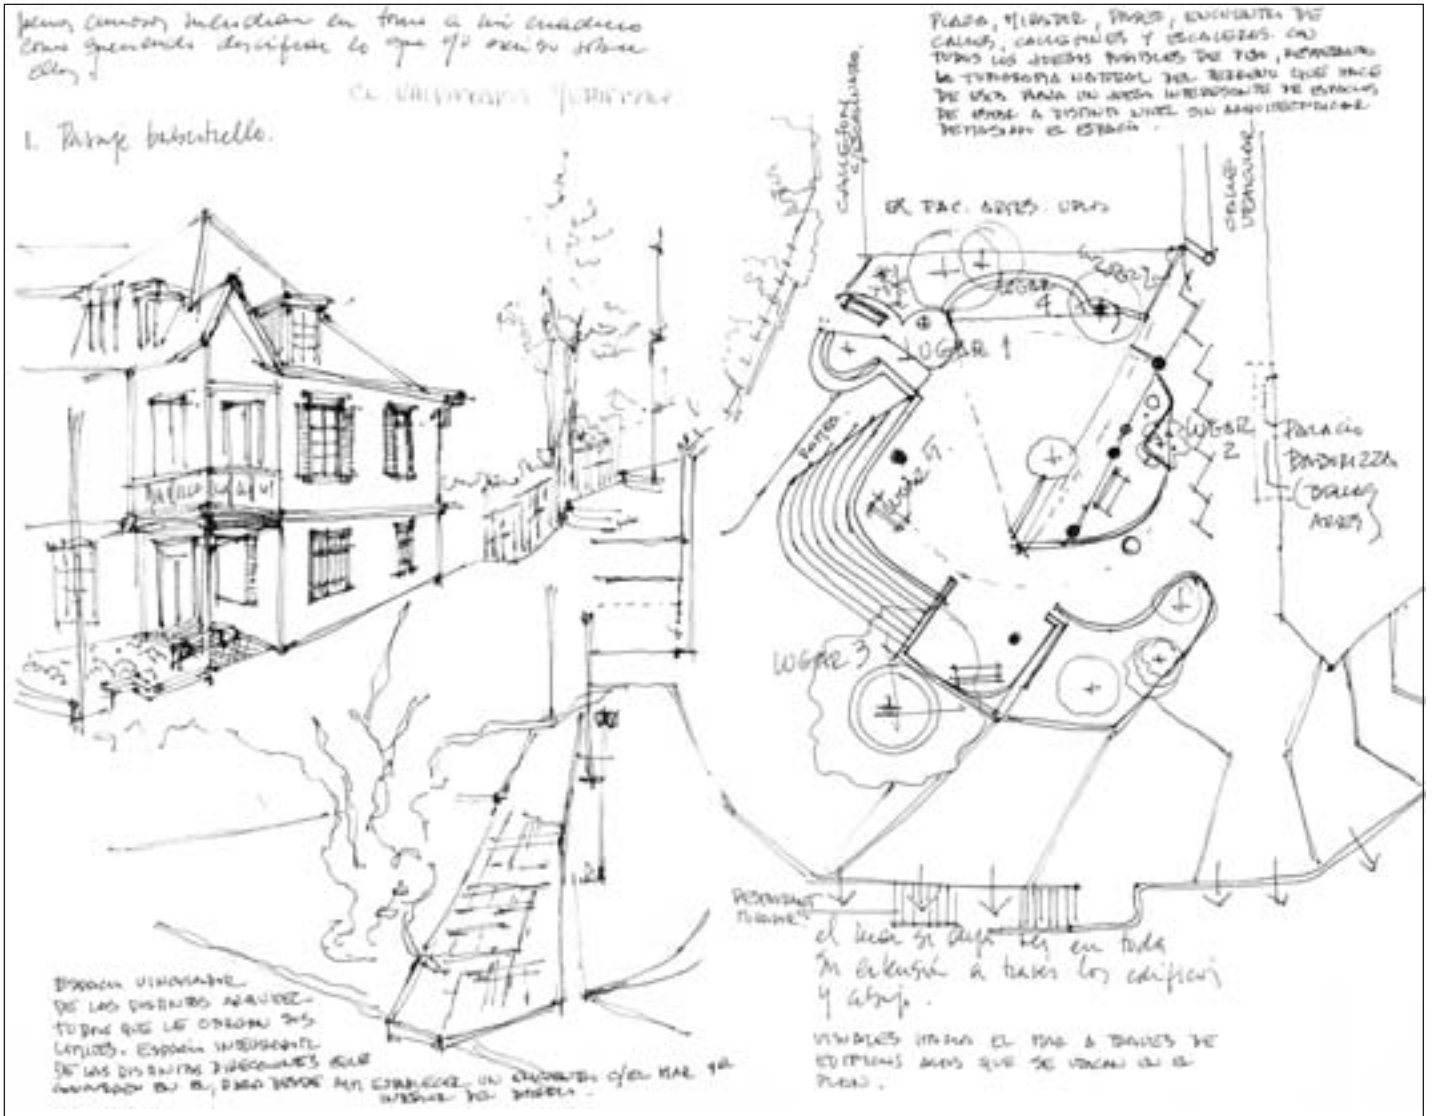 como queriendo descifrar lo que yo escribo sobre
ellos.
1. Pasaje babestrello.
PLAZA, MIRADOR, PASEO, ENCUENTRO DE
CALLES, CALLEJONES Y ESCALERAS. CON
TODOS LOS JUEGOS POSIBLES DE PISO, RESPETANDO
LA TOPOGRAFIA NATURAL DEL TERRENO QUE HACE
DE ESTA PLAZA UN JUEGO INTERESANTE DE ESPACIOS
DE ESTAR A DISTINTO NIVEL SIN ARQUITECTONIZAR
DEMASIADO EL ESPACIO.
CALLEJON
EX FAC. ARTES. UPLA
CALLE
VEHICULAR
LUGAR 4
LUGAR 1
LUGAR
2
LUGAR 3
PALACIO
BABURIZZA
(BELLAS
ARTES)
RESTAURANT
MIRADOR
el mar se deja ver en toda
su extensión a traves los edificios
y abajo.
VISUALES HACIA EL MAR A TRAVES DE
EDIFICIOS ALTOS QUE SE UBICAN EN EL
PLAN.
ESPACIO VINCULADOR
DE LAS DISTINTAS ARQUITEC-
TURAS QUE LE OTORGAN SUS
LIMITES. ESPACIO INTEGRANTE
DE LAS DISTINTAS DIRECCIONES QUE
EN EL, PARA DESDE ALLI ESTABLECER UN ENCUENTRO C/EL MAR Y EL
INTERIOR DEL